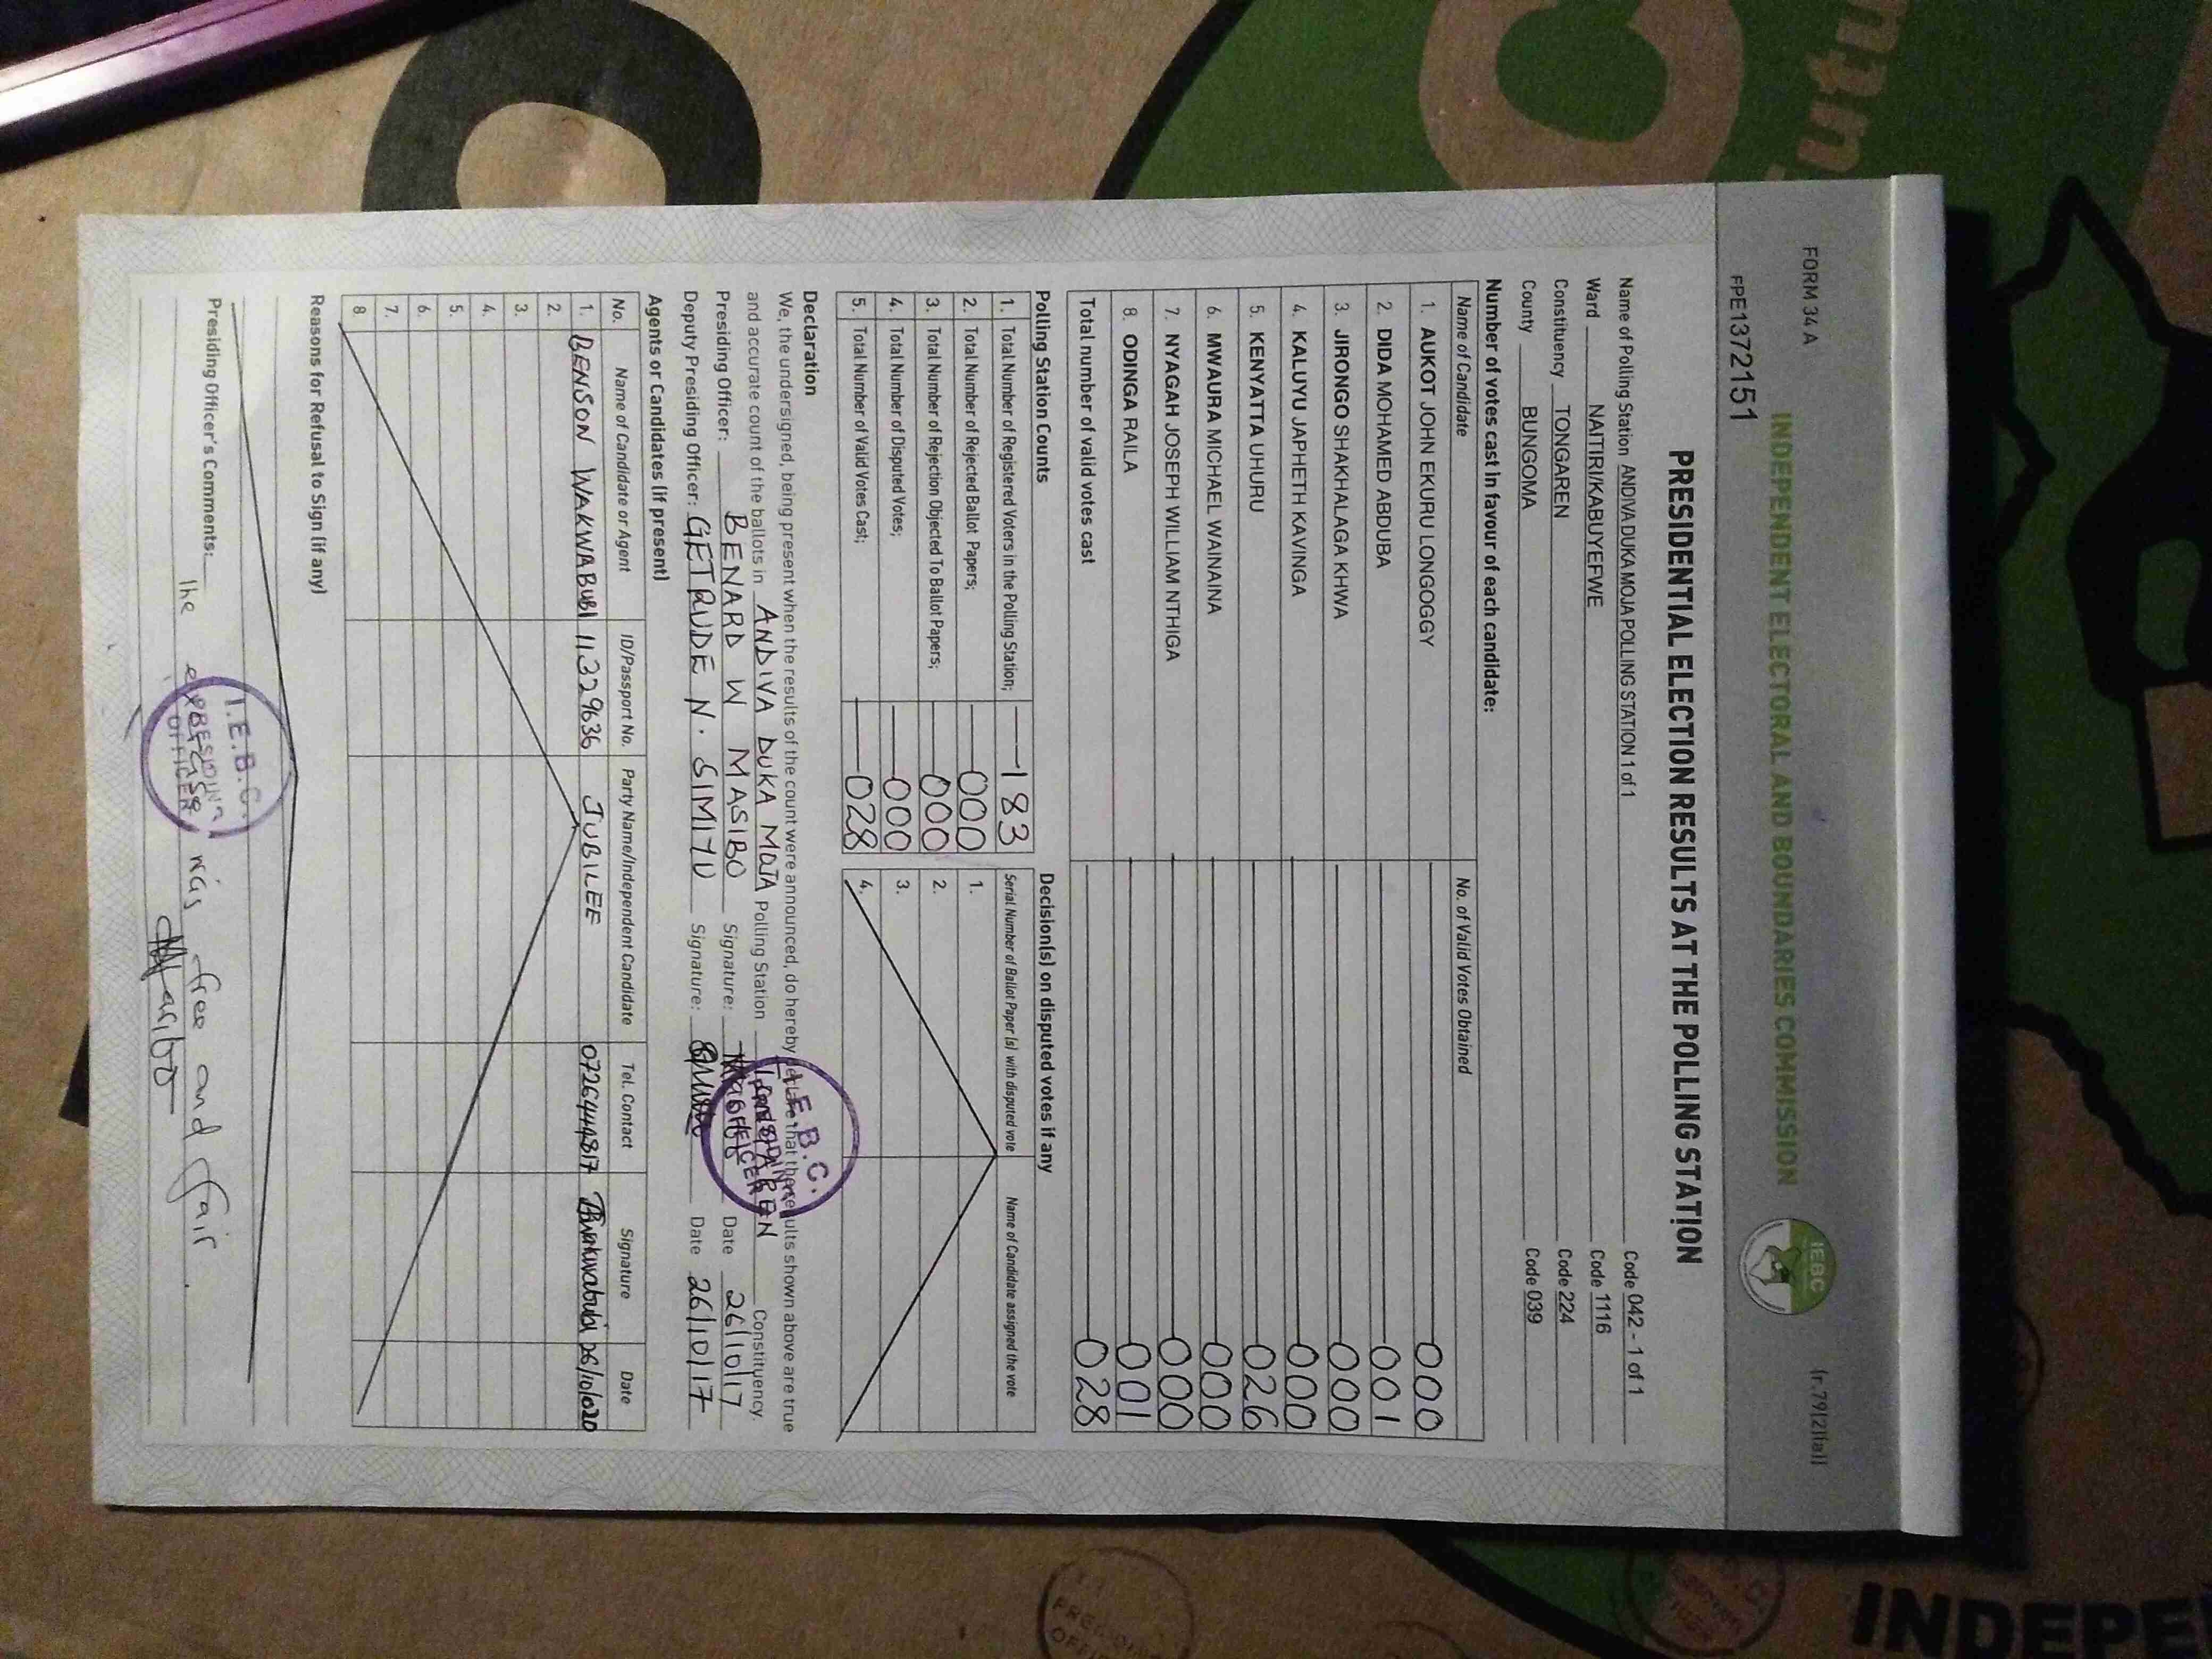 FORM 34 A
(r.79(2)(a))
INDEPENDENT ELECTORAL AND BOUNDARIES COMMISSION
IEBC
FPE1372151
PRESIDENTIAL ELECTION RESULTS AT THE POLLING STATION
Name of Polling Station ANDIVA DUKA MOJA POLLING STATION 1 of 1 Code 042 - 1 of 1
Ward NAITIRI/KABUYEFWE Code 1116
Constituency TONGAREN Code 224
County BUNGOMA Code 039
Number of votes cast in favour of each candidate:
Name of Candidate No. of Valid Votes Obtained
1. AUKOT JOHN EKURU LONGOGGY 000
2. DIDA MOHAMED ABDUBA 001
3. JIRONGO SHAKHALAGA KHWA 000
4. KALUYU JAPHETH KAVINGA 000
5. KENYATTA UHURU 026
6. MWAURA MICHAEL WAINAINA 000
7. NYAGAH JOSEPH WILLIAM NTHIGA 000
8. ODINGA RAILA 001
Total number of valid votes cast 028
Polling Station Counts
1. Total Number of Registered Voters in the Polling Station; 183
2. Total Number of Rejected Ballot Papers; 000
3. Total Number of Rejection Objected To Ballot Papers; 000
4. Total Number of Disputed Votes; 000
5. Total Number of Valid Votes Cast; 028
Decision(s) on disputed votes if any
Serial Number of Ballot Paper (s) with disputed vote Name of Candidate assigned the vote
1.
2.
3.
4.
Declaration
We, the undersigned, being present when the results of the count were announced, do hereby declare that the results shown above are true
and accurate count of the ballots in ANDIVA DUKA MOJA Polling Station TONGAREN Constituency.
Presiding Officer: BENARD W MASIBO Signature: Date 26/10/17
Deputy Presiding Officer: GETRUDE N. SIMIYU Signature: Date 26/10/17
I.E.B.C.
PRESIDING
OFFICER
Agents or Candidates (if present)
No. Name of Candidate or Agent ID/Passport No. Party Name/Independent Candidate Tel. Contact Signature Date
1. BENSON WAKWABUBI 11329636 JUBILEE 0726444817 26/10/020
2.
3.
4.
5.
6.
7.
8.
Reasons for Refusal to Sign (if any)
Presiding Officer's Comments:
The was free and fair.
I.E.B.C.
PRESIDING
OFFICER
Masibo
INDEPE